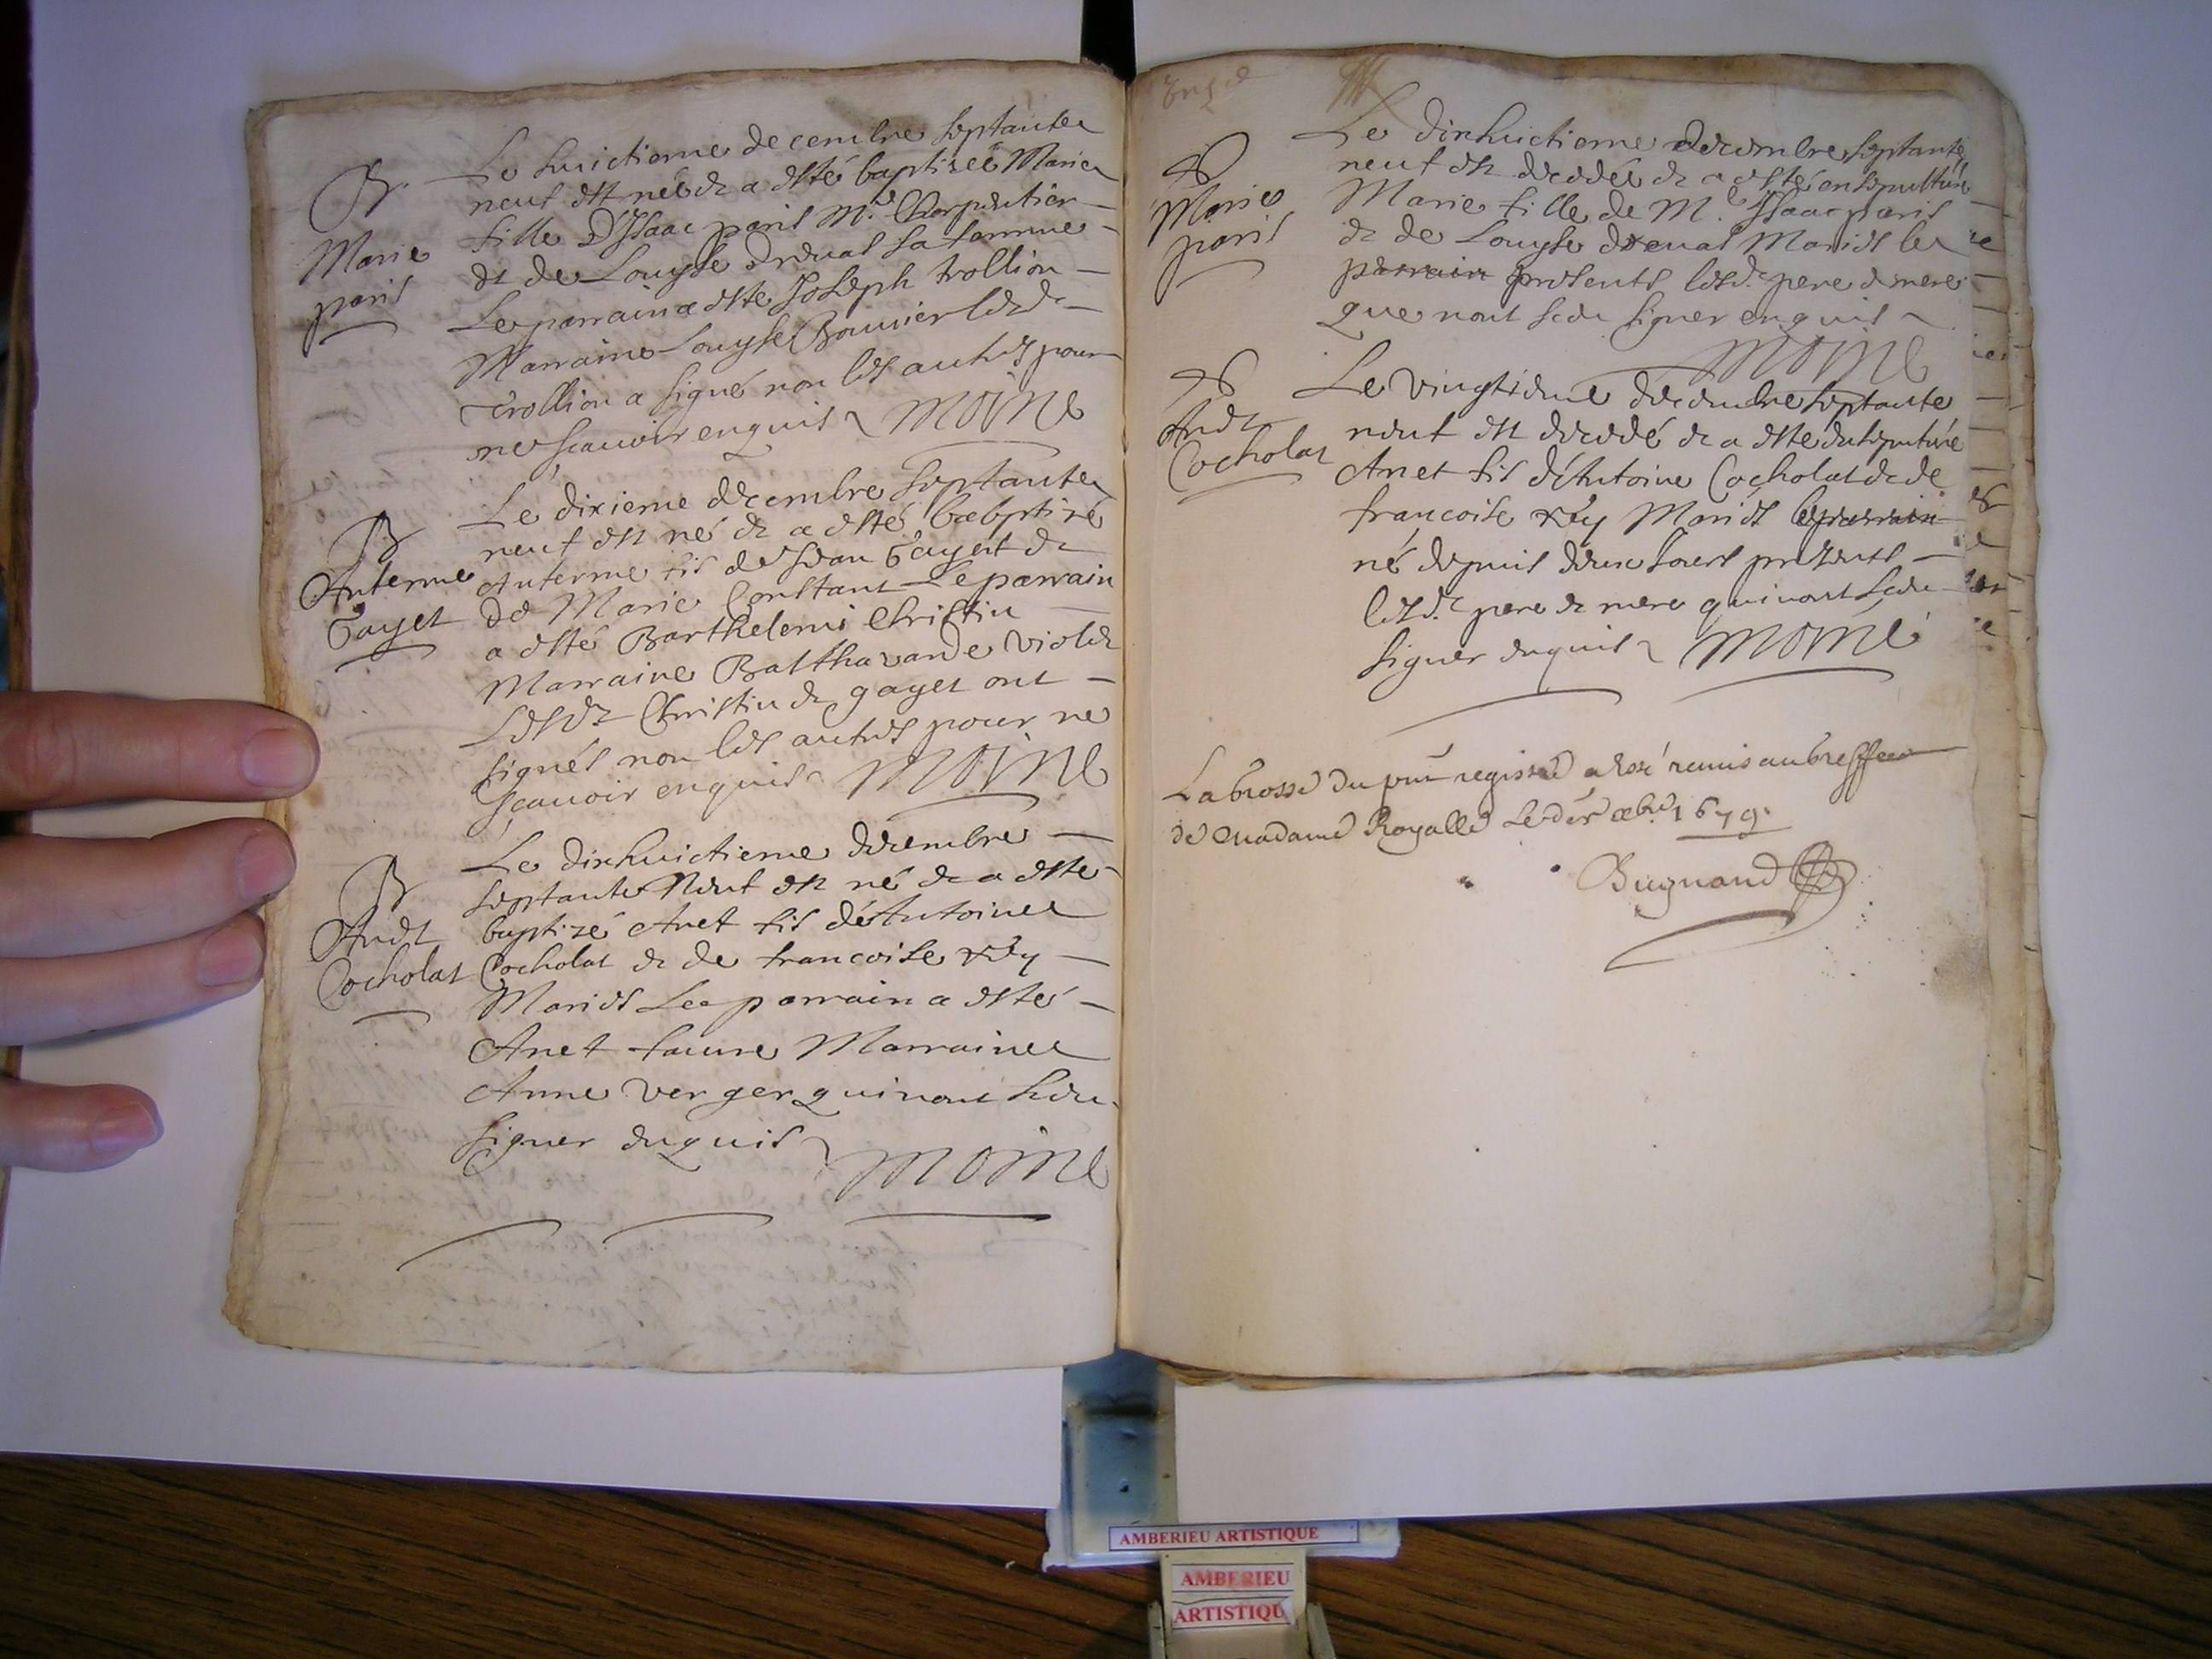 B
Marie
paris
Le huictieme decembre septante
neuf est née & a esté baptisée Marie
fille D'Isaac paris M.e Charpentier
& de Louyse dreval sa femme
Le parrain a esté Joseph trollion
Marraine Louyse Bouvier led.
trollion a signé non les autres pour
ne scauoir enquis Moine
B
Anterme
Gayet
Le dixieme decembre septante
neuf est né & a esté baebptizé
Anterme fis de Jean Gayet &
de Marie Constant Le parrain
a esté Barthelemi Christin
Marraine Balthazarde Violet
Lesd. Christin & gayet ont
signés non les autres pour ne
scauoir enquis Moine
B
Anet
Cocholat
Le dixhuictieme decembre
septante Neuf est né & a esté
baptizé Anet fis d'Antoine
Cocholat & de francoise rey
Mariés Le parrain a esté
Anet faure Marraine
Anne verger qui nont sceu
signer enquis
Moine
Marie
paris
Le dixhuictieme decembre septante
neuf est decedée & a esté ensepulturé
Marie fille de M.e Isaac paris
& de Louyse dreval Mariés le
parrain presents lesd. pere & mere
que nont sceu signer enquis
Moine
Anet
Cocholat
Le vingtieme decembre septante
neuf est decedé & a esté ensepulturé
Anet fis d'Antoine Cocholat & de
francoise rey Mariés le parrain
né depuis deux Jours presents
lesd. pere & mere qui nont sceu
signer enquis Moine
La grosse du pnt registre a esté remis au greffe
de Madame Royalle Le der xbre 1679.
Bugnand
AMBERIEU ARTISTIQUE
AMBERIEU
ARTISTIQU